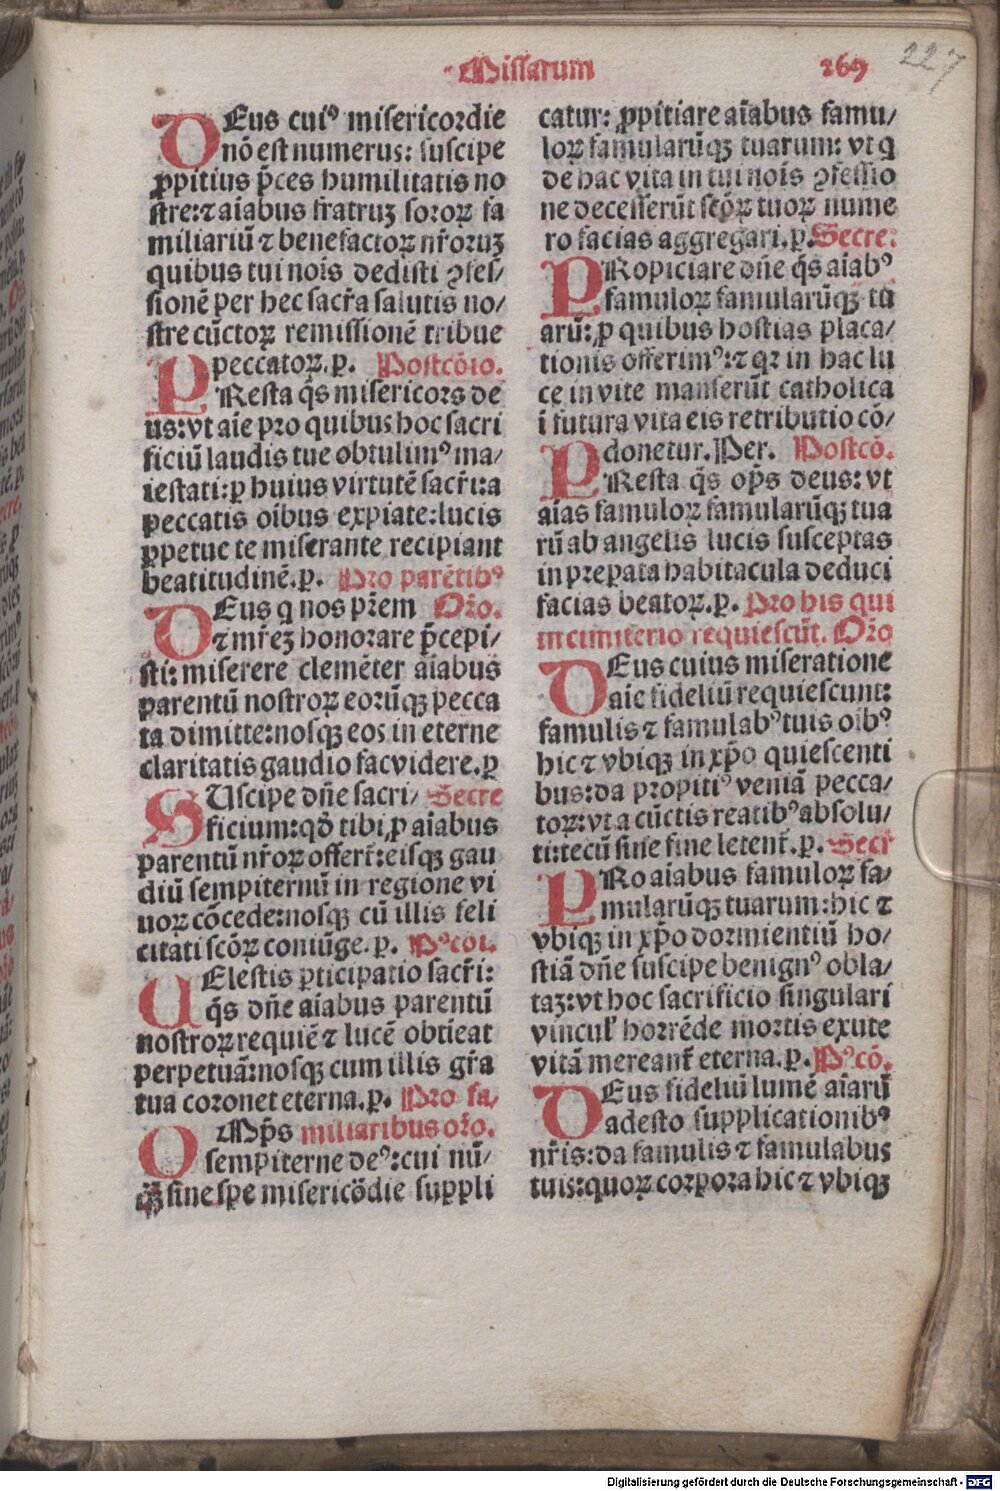 Missarum
269
227
DEus cuiꝰ misericordie
nō est numerus: suscipe
ꝓpitius p̄ces humilitatis no
stre: ⁊ aīabus fratruꝫ soroꝝ fa
miliariū ⁊ benefactoꝝ nr̄oruꝫ
quibus tui nois̄ dedisti ꝯfes/
sionē per hec sacr̄a salutis no/
stre cūctoꝝ remissionē tribue
peccatoꝝ. p. Postcōio.
PResta q̄s misericors de
us: vt aīe pro quibus hoc sacri
ficiū laudis tue obtulimꝰ ma/
iestati: ꝑ huius virtutē sacr̄i: a
peccatis oībus expiate: lucis
ꝑpetue te miserante recipiant
beatitudinē. p. Pro parētibꝰ
DEus q nos pr̄em Or̄o.
⁊ mr̄eꝫ honorare p̄cepi/
sti: miserere clemēter aīabus
parentū nostroꝝ eorūqꝫ pecca
ta dimitte: nosqꝫ eos in eterne
claritatis gaudio fac videre. p
SUscipe dn̄e sacri/ Secre
ficium: qd̄ tibi ꝓ aīabus
parentū nr̄oꝝ offert̄: eisqꝫ gau
diū sempiternū in regione vi
uoꝝ cōcede: nosqꝫ cū illis feli
citati scōꝝ coniūge. p. Pꝰcoi.
CElestis ꝑticipatio sacr̄i:
q̄s dn̄e aīabus parentū
nostroꝝ requiē ⁊ lucē obtīeat
perpetuā: nosqꝫ cum illis gr̄a
tua coronet eterna. p. Pro fa/
OMp̄s miliaribus or̄o.
sempiterne deꝰ: cui nū/
q̄ꝫ sine spe misericōdie suppli
catur: ꝓpitiare aīabus famu/
loꝝ famularūqꝫ tuarum: vt q
de hac vita in tui nois̄ ꝯfessio
ne decesserūt scōꝝ tuoꝝ nume
ro facias aggregari. p. Secre:
PRopiciare dn̄e q̄s aīabꝰ
famuloꝝ famularūqꝫ tu
arū: ꝓ quibus hostias placa/
tionis offerimꝰ: ⁊ qꝛ in hac lu
ce in vite manserūt catholica
ī futura vita eis retributio cō/
donetur. Per. Postcō.
PResta q̄s op̄s deus: vt
aīas famuloꝝ famularūqꝫ tua
rū ab angelis lucis susceptas
in prepata habitacula deduci
facias beatoꝝ. p. Pro his qui
in cimiterio requiescūt. Or̄o
DEus cuius miseratione
aīe fideliū requiescunt:
famulis ⁊ famulabꝰ tuis oībꝰ
hic ⁊ vbiqꝫ in xp̄o quiescenti
bus: da propitiꝰ veniā pecca/
toꝝ: vt a cūctis reatibꝰ absolu/
ti: tecū sine fine letent̄. p. Secr̄
PRo aīabus famuloꝝ fa/
mularūqꝫ tuarum: hic ⁊
vbiqꝫ in xp̄o dormientiū ho/
stiā dn̄e suscipe benignꝰ obla/
taꝫ: vt hoc sacrificio singulari
vincul' horrēde mortis exute
vitā mereant̄ eterna. p. Pꝰcō.
DEus fideliū lumē aīarū
adesto supplicationibꝰ
nr̄is: da famulis ⁊ famulabus
tuis: quoꝝ corpora hic ⁊ vbiqꝫ
Digitalisierung gefördert durch die Deutsche Forschungsgemeinschaft - DFG